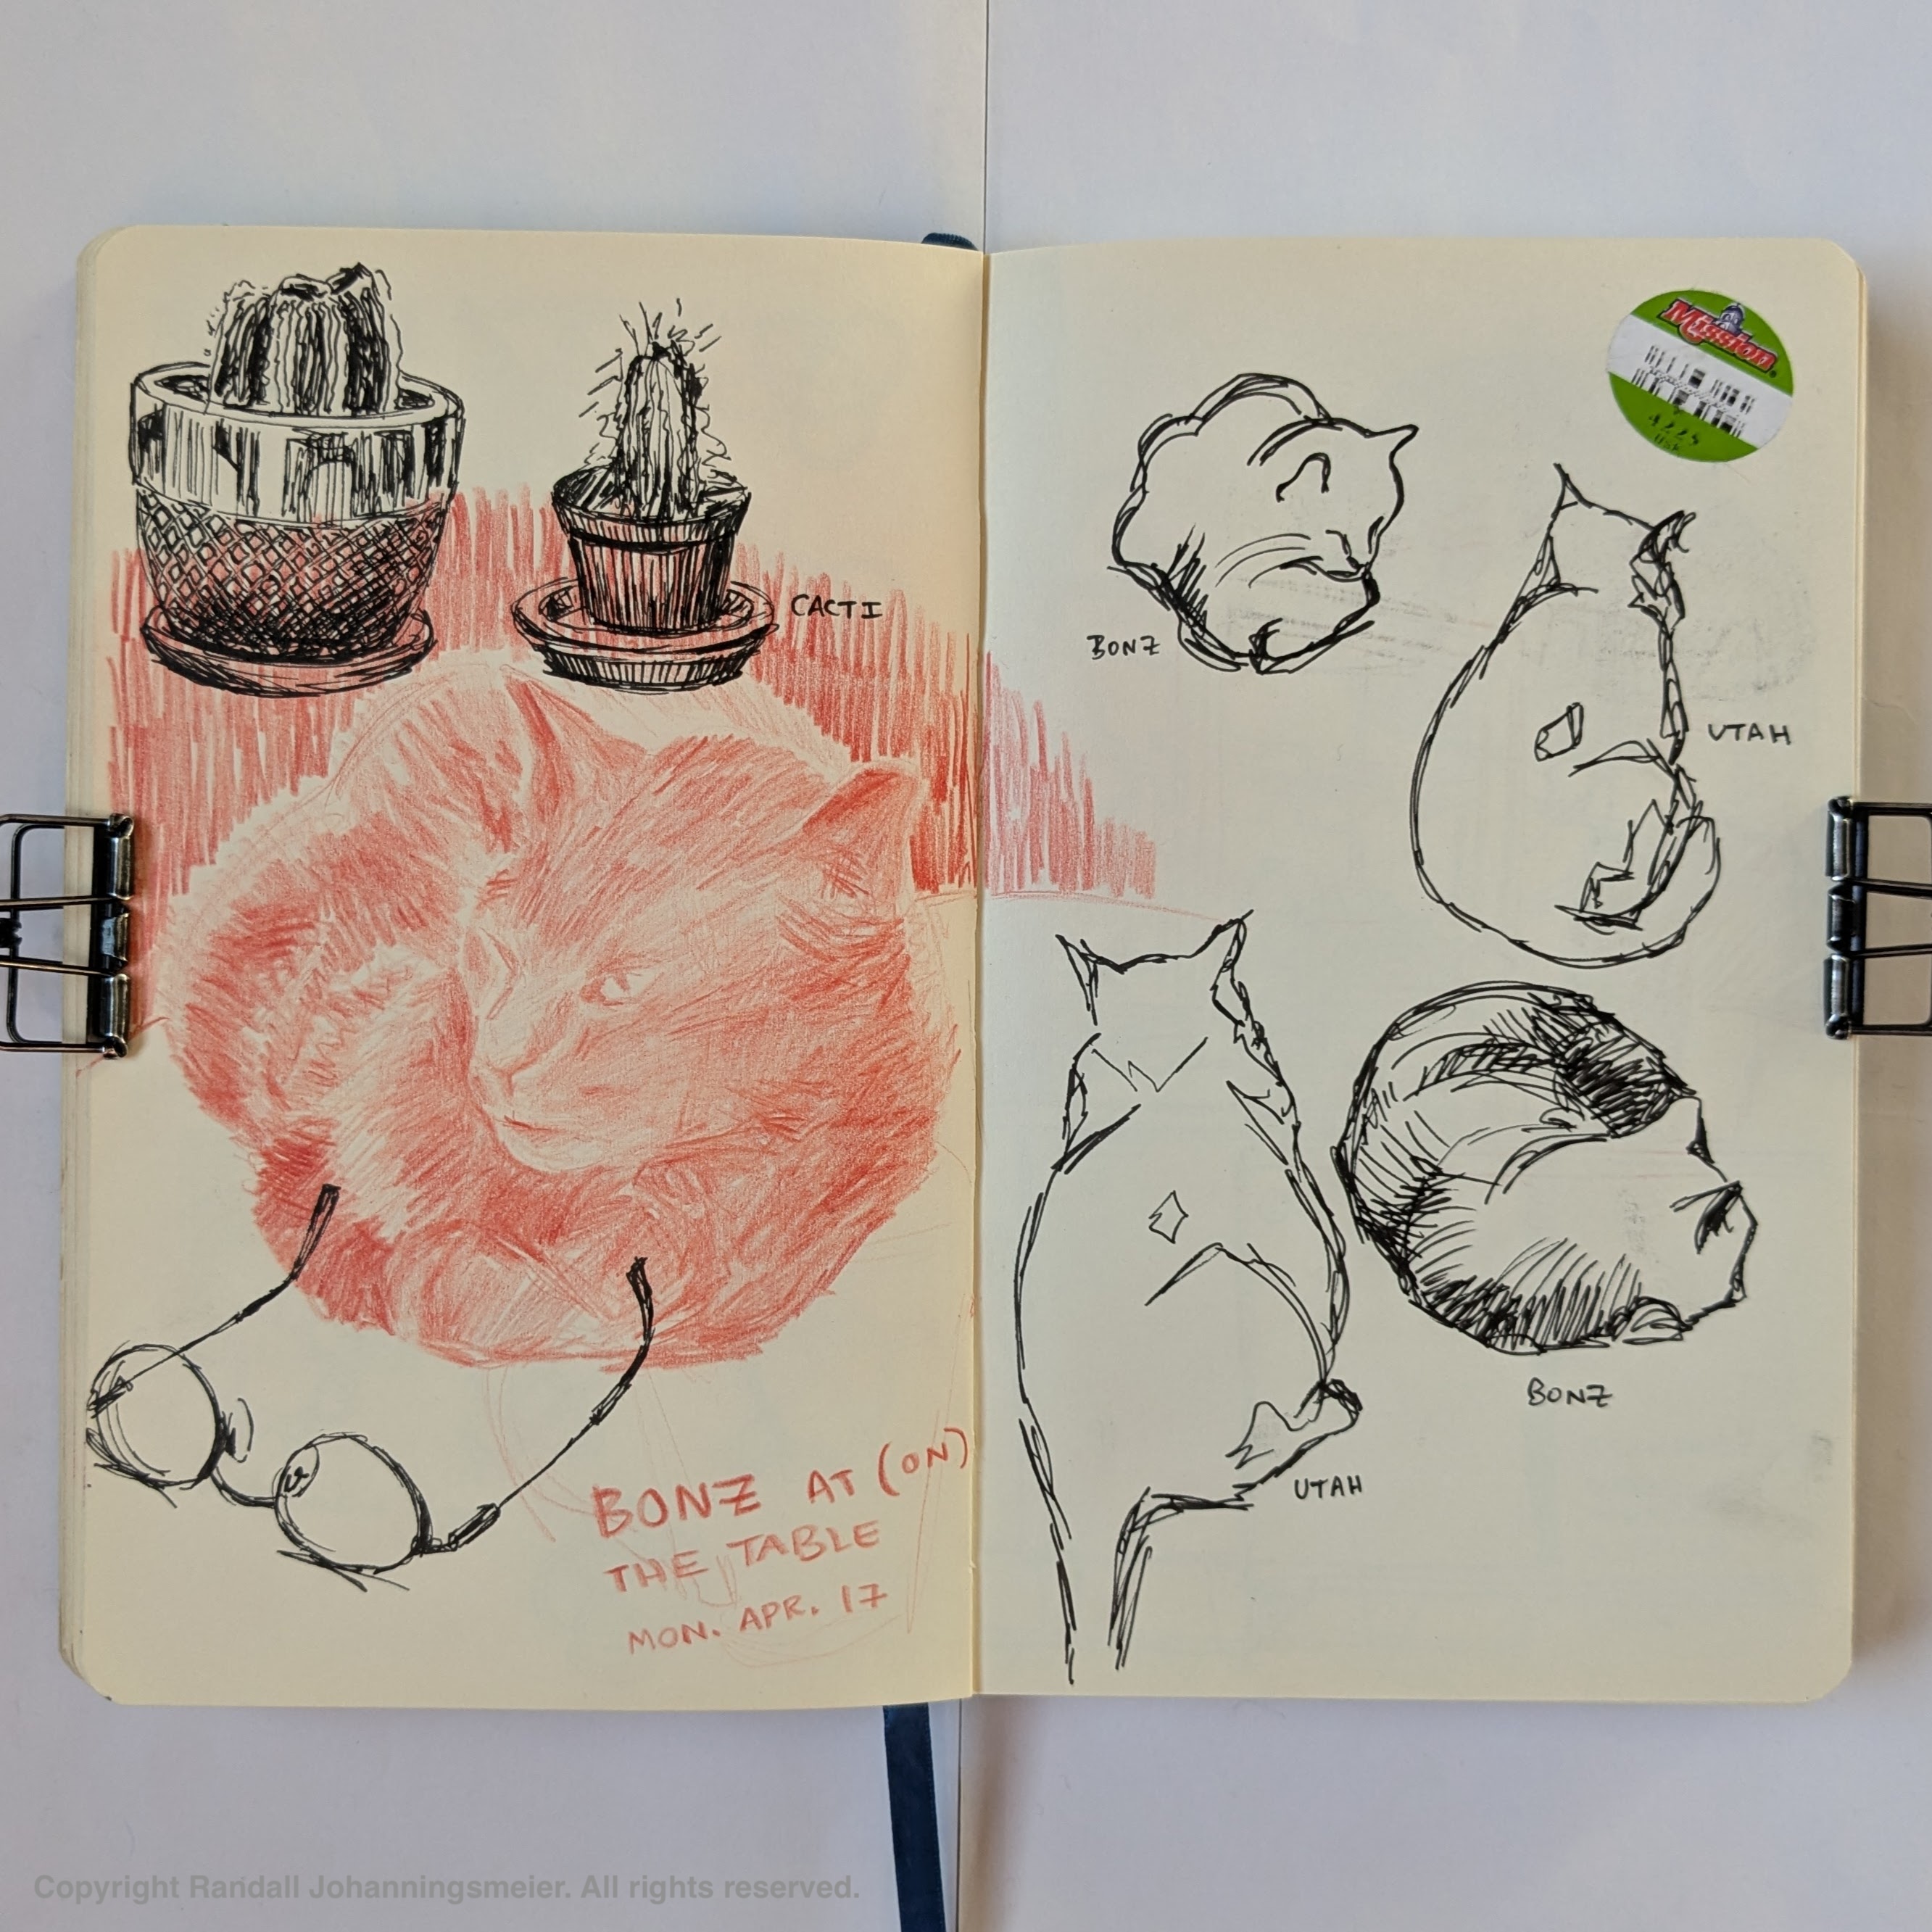 CACTI
BONZ AT (ON)
THE TABLE
MON. APR. 17
Mission
4225
BONZ
UTAH
BONZ
UTAH
Copyright Randall Johanningsmeier. All rights reserved.